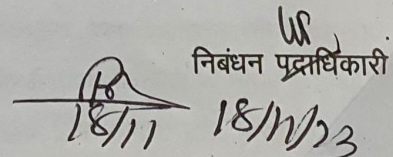 निबंधन पदाधिकारी
18/11 18/11/23